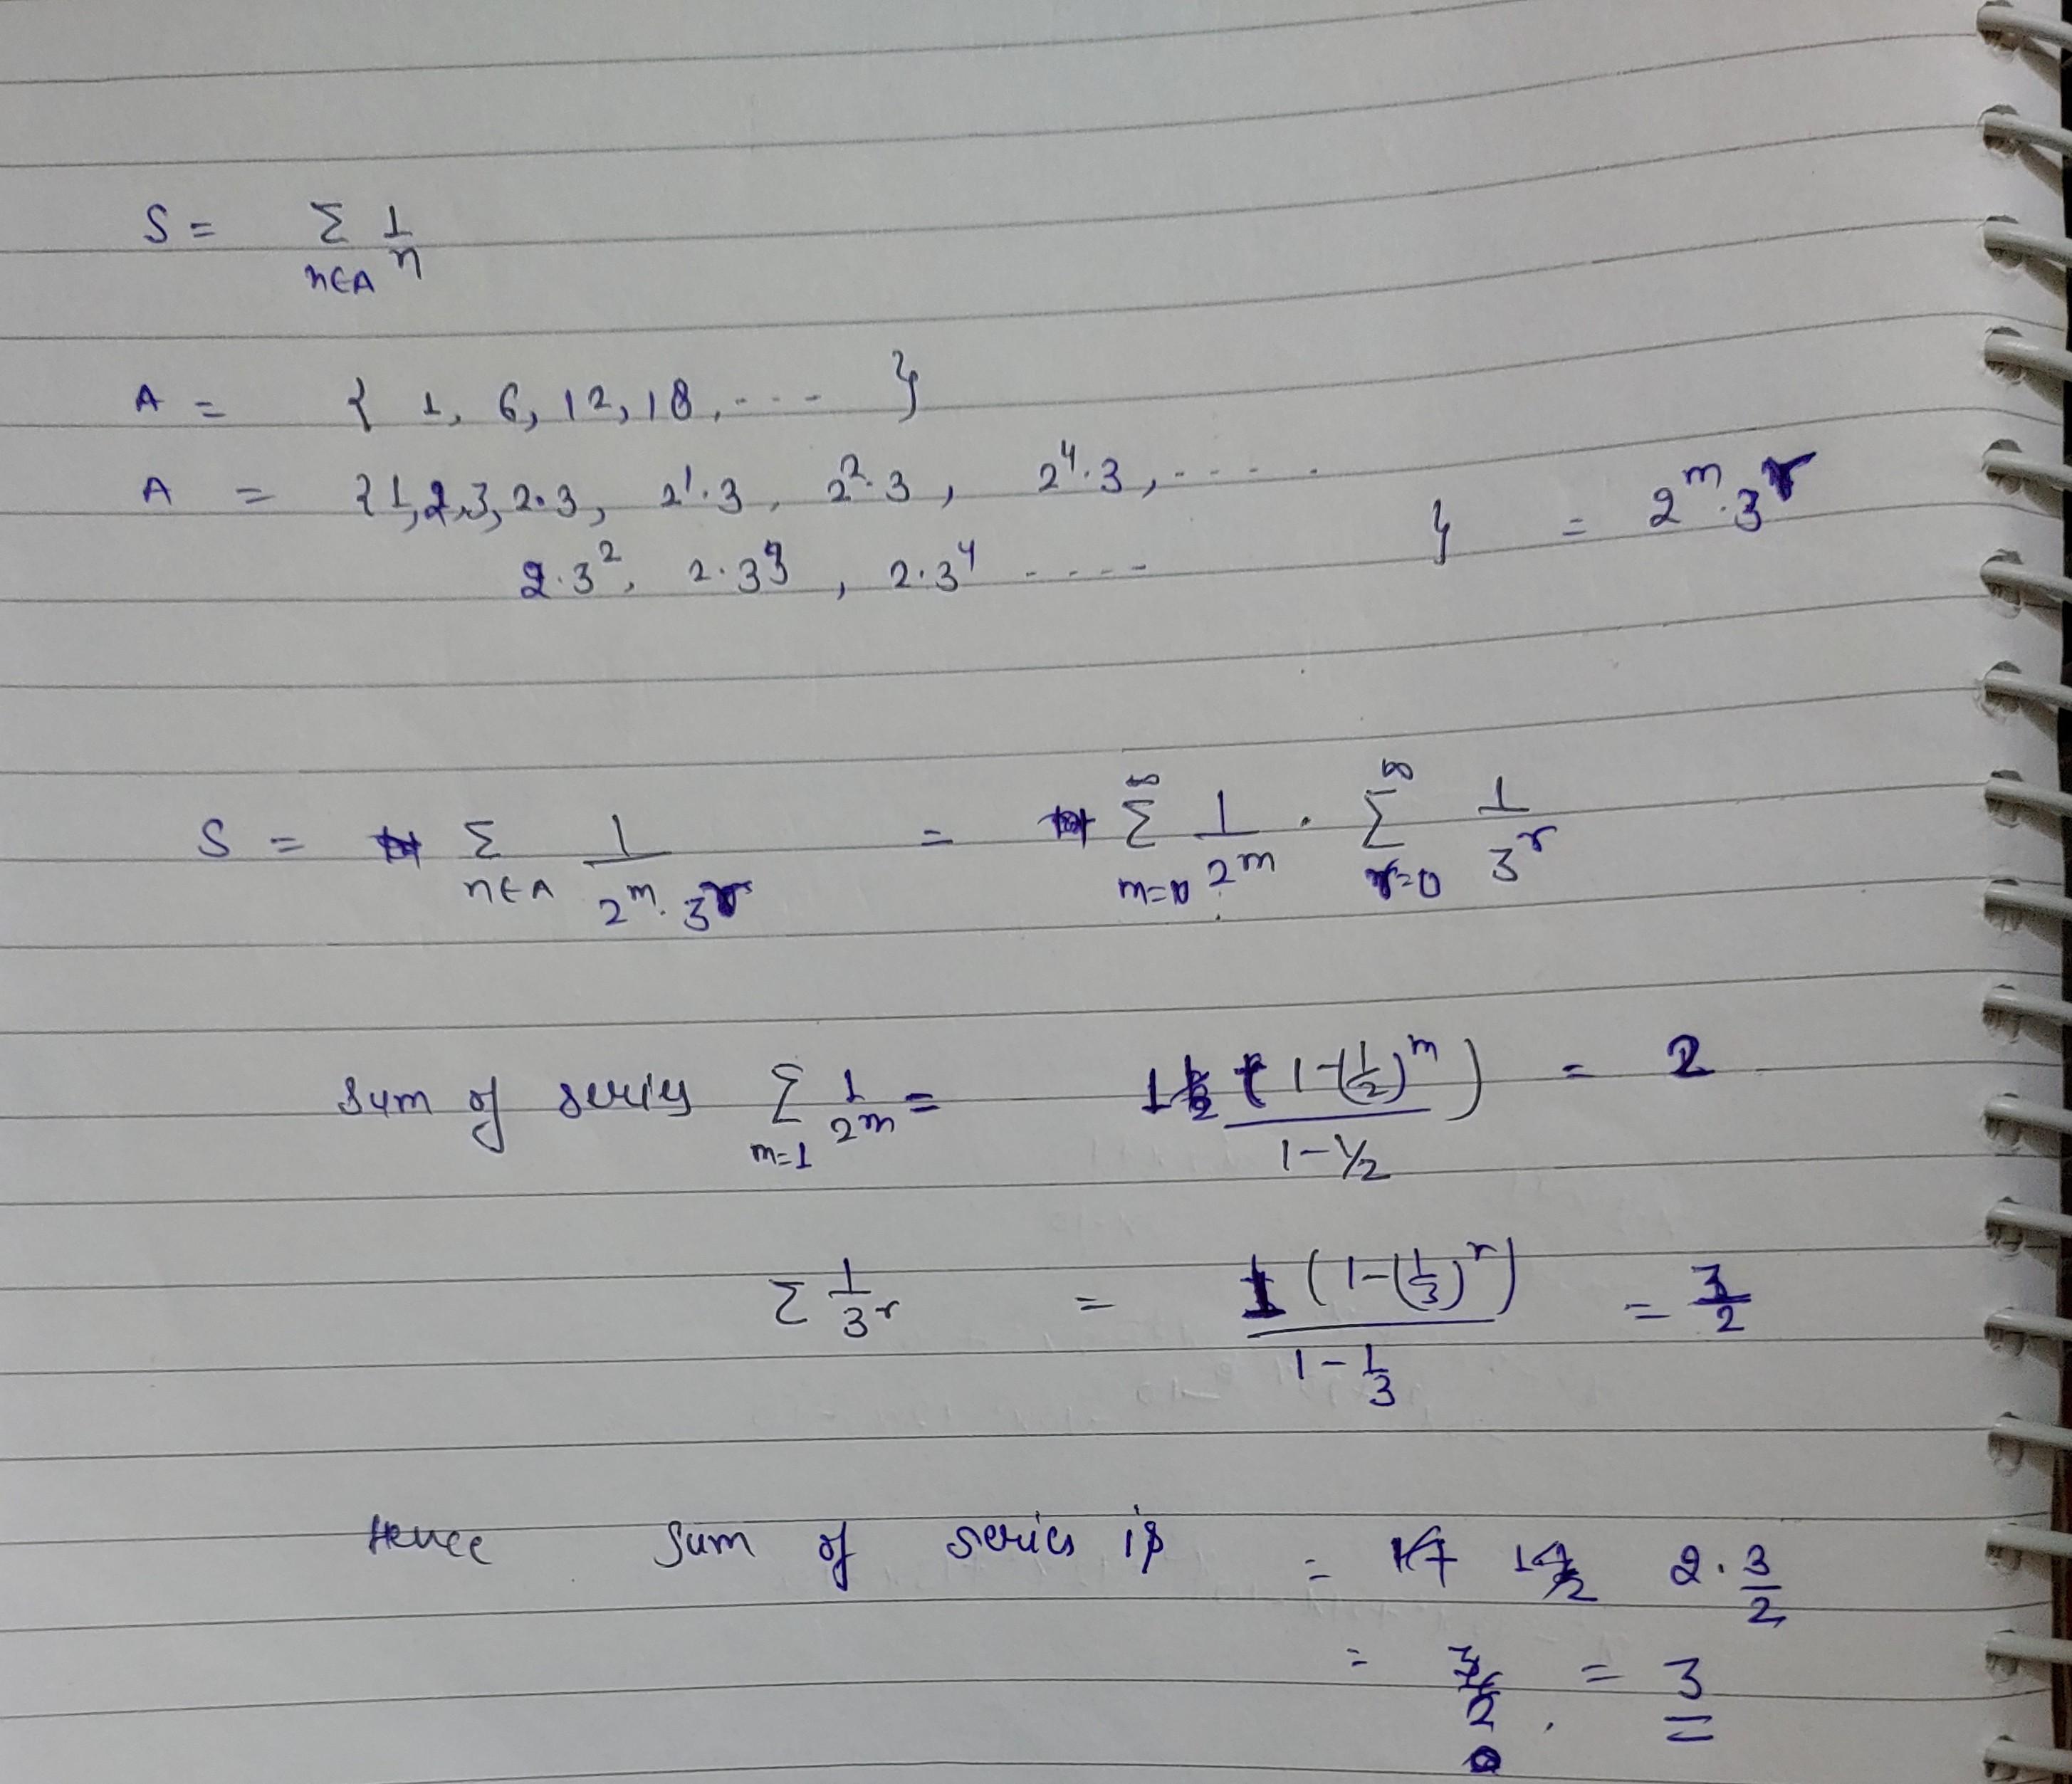 S = Σ n∈A 1/n
A = { 1, 6, 12, 18, ---- }
A = {1,2,3, 2·3, 2¹·3, 2²·3, 2⁴·3, -----
2·3², 2·3³, 2·3⁴ ---- } = 2^m·3^r
S = Σ n∈A 1/(2^m·3^r) = Σ m=0 ∞ 1/2^m · Σ r=0 ∞ 1/3^r
Sum of series Σ m=1 1/2^m = 1 (1-(1/2)^m)/(1-1/2) = 2
Σ 1/3^r = 1(1-(1/3)^r)/(1-1/3) = 3/2
Hence Sum of series is = 2·3/2
= = 3